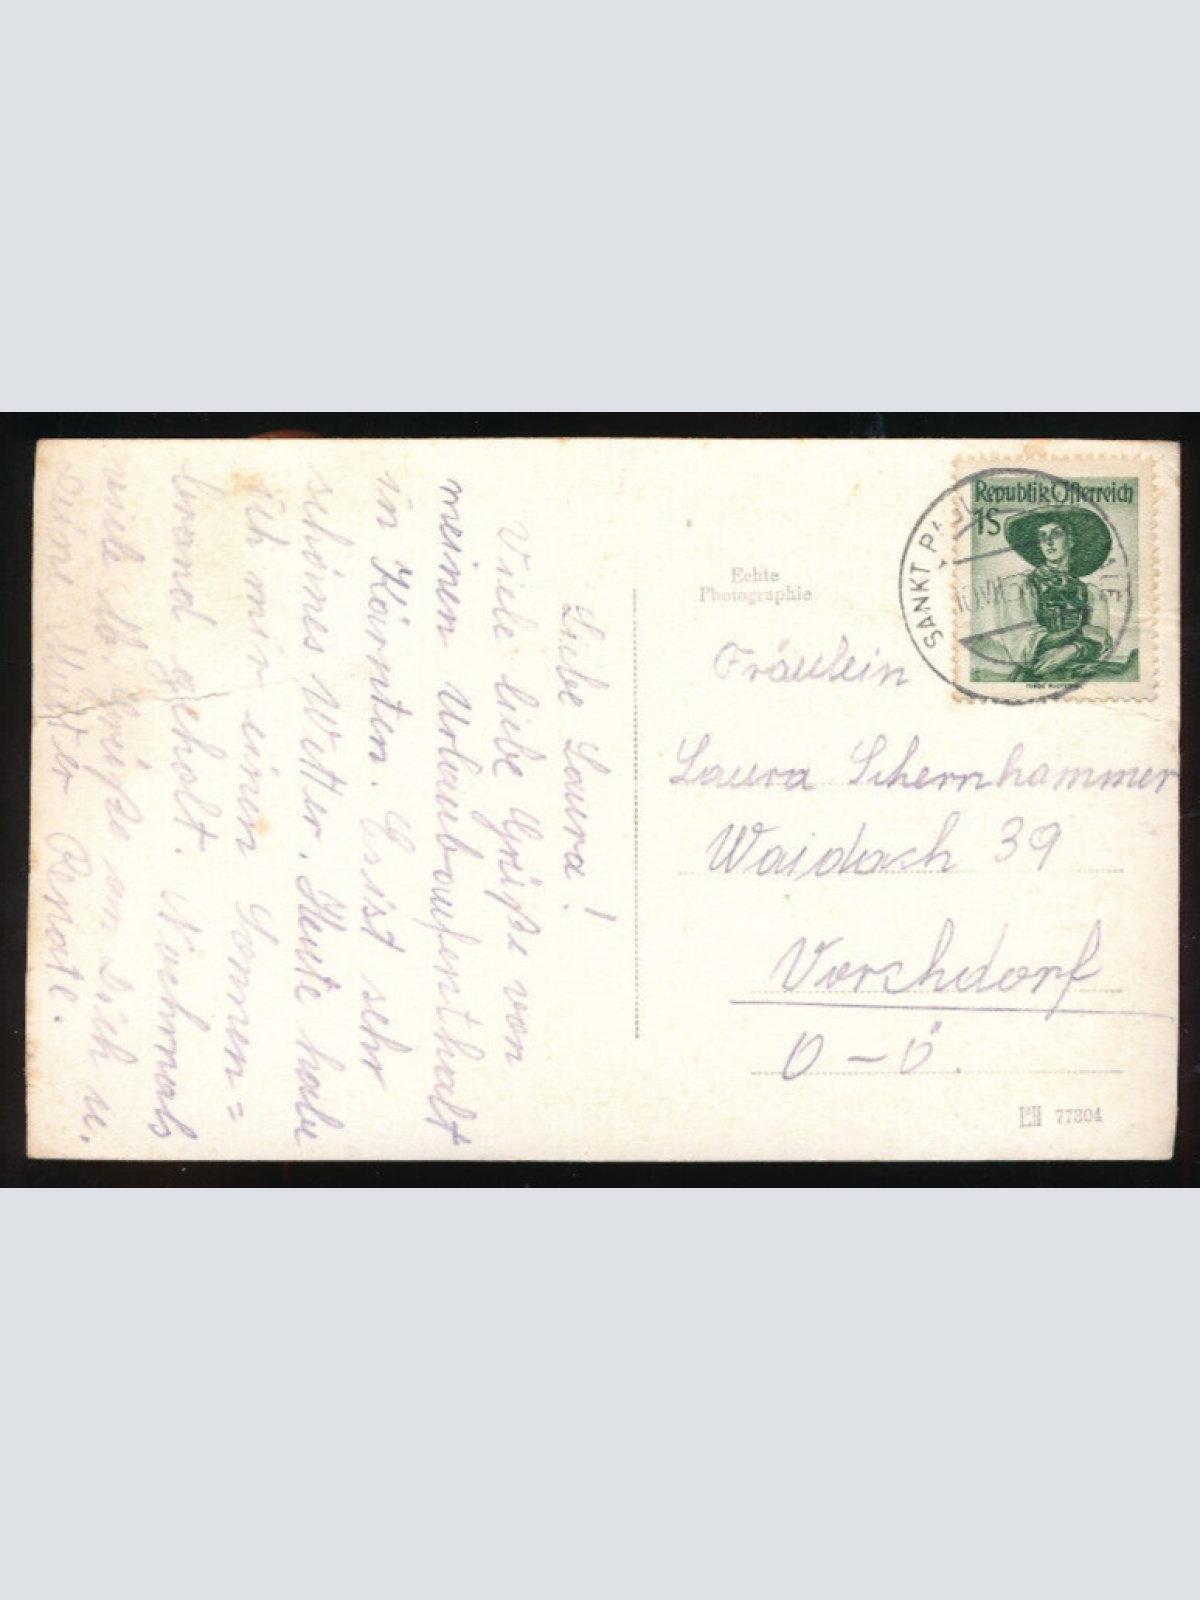 Liebe Laura!
Viele liebe Grüße von
meinem Urlaubaufenthalt
in Kärnten. Es ist sehr
schönes Wetter. Heute habe
ich mir einen Sonnen=
brand geholt. Nochmals
viele lb. Grüße an Dich u.
Deine Mutter Renate.
Echte
Photographie
Republik Österreich
1S
SANKT PAUL
Fräulein
Laura Schernhammer
Waidach 39
Vorchdorf
O-Ö.
77304